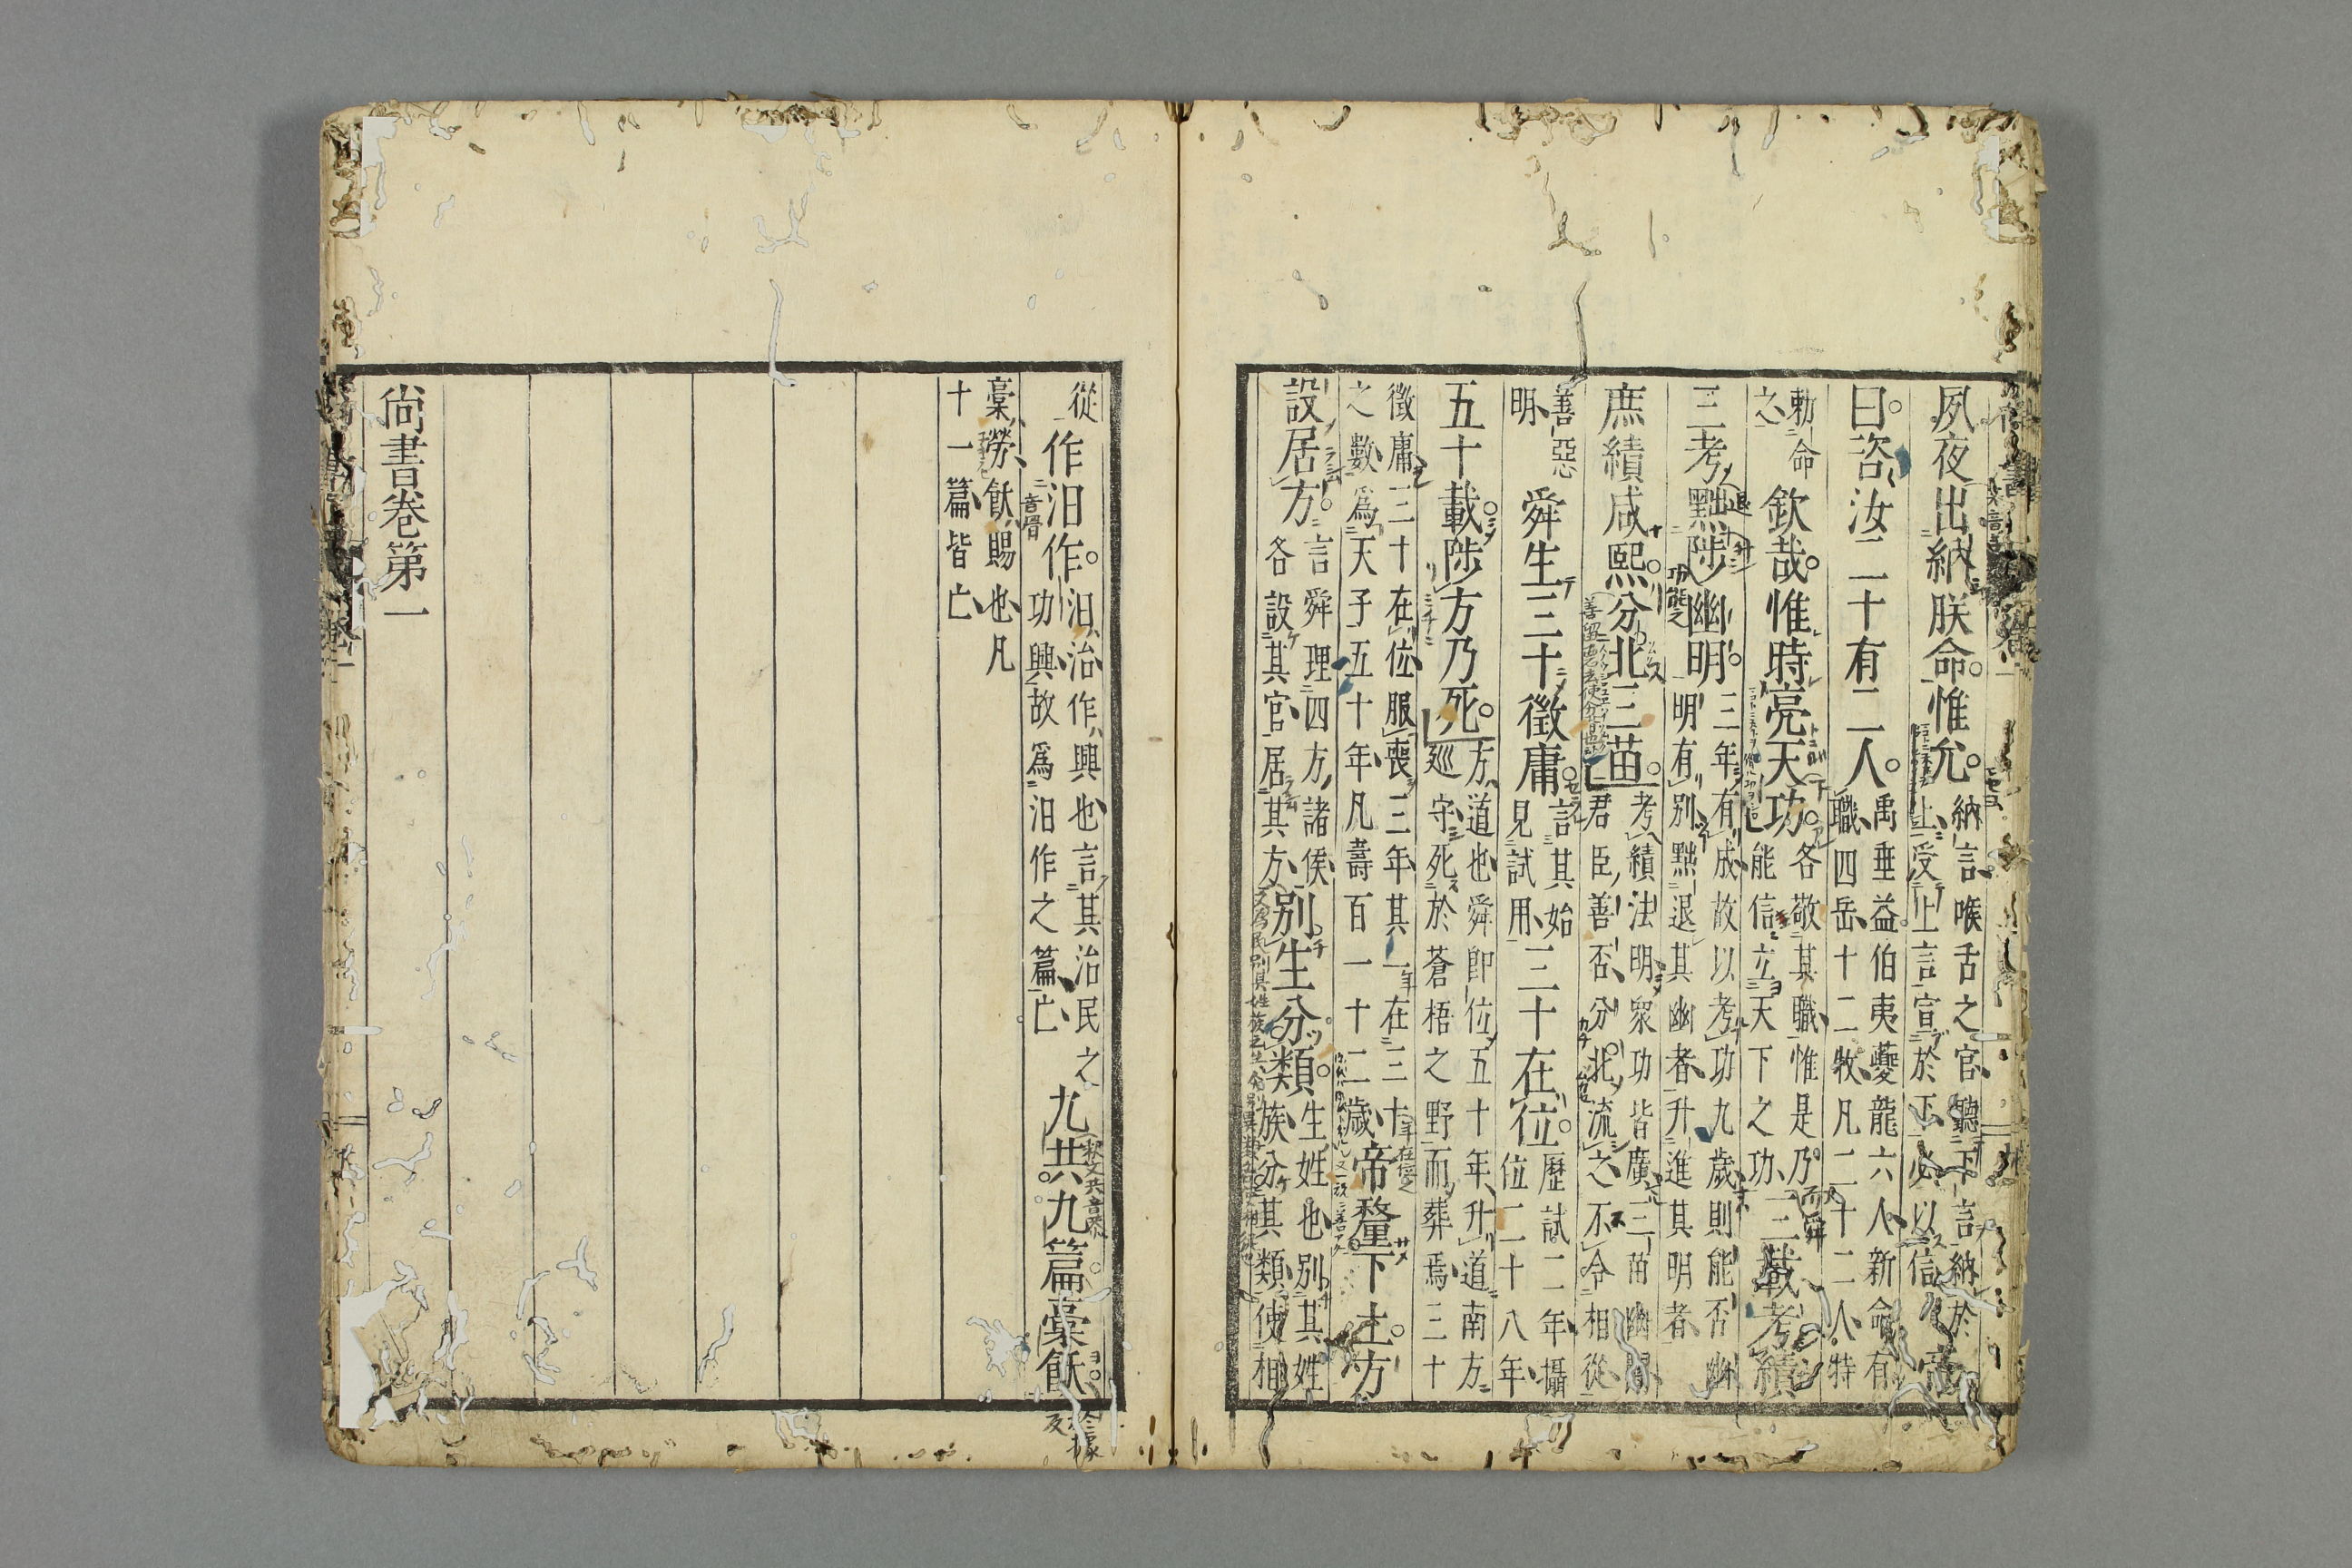 夙夜出納朕命惟允納言喉舌之官聽下言納於
上受上言宣於下必以信帝
曰咨汝二十有二人禹垂益伯夷夔龍六人新命有
職四岳十二牧凡二十二人特
勅命
之欽哉惟時亮天功各敬其職惟是乃
能信立天下之功三載考績
三考黜陟幽明三年有成故以考功九歲則能否幽
明有別黜退其幽者升進其明者
庶績咸熙分北三苗考績法明衆功皆廣三苗幽闇
君臣善否分北流之不令相從
善惡
明舜生三十徵庸言其始
見試用三十在位歷試二年攝
位二十八年
五十載陟方乃死方道也舜即位五十年升道南方
巡守死於蒼梧之野而葬焉三十
徵庸三十在位服喪三年其一在三十
之數爲天子五十年凡壽百一十二歲帝釐下土方
設居方言舜理四方諸侯
各設其官居其方別生分類生姓也別其姓
族分其類使相
從作汩作汩治作興也言其治民之
功興故爲汩作之篇亡九共九篇稾飫
稾勞飫賜也凡
十一篇皆亡
尚書卷第一